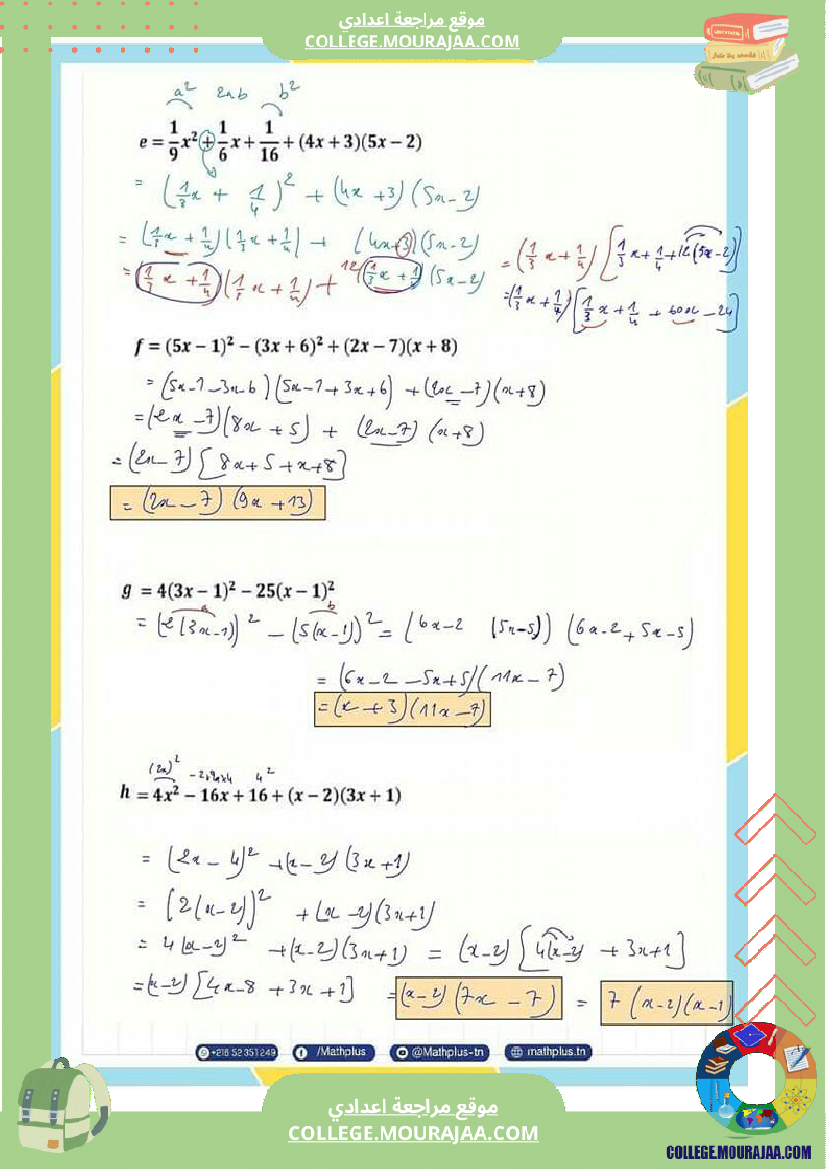 موقع مراجعة اعدادي
COLLEGE.MOURAJAA.COM
a² 2ab b²
e = 1/9 x² + 1/6 x + 1/16 + (4x + 3)(5x − 2)
= (1/3 x + 1/4)² + (4x + 3)(5x − 2)
= (1/3 x + 1/4)(1/3 x + 1/4) + (4x + 3)(5x − 2)
= (1/3 x + 1/4)(1/3 x + 1/4) + 12(1/3 x + 1/4)(5x − 2)
= (1/3 x + 1/4)[1/3 x + 1/4 + 12(5x − 2)]
= (1/3 x + 1/4)[1/3 x + 1/4 + 60x − 24]
f = (5x − 1)² − (3x + 6)² + (2x − 7)(x + 8)
= (5x − 1 − 3x − 6)(5x − 1 + 3x + 6) + (2x − 7)(x + 8)
= (2x − 7)(8x + 5) + (2x − 7)(x + 8)
= (2x − 7)[8x + 5 + x + 8]
= (2x − 7)(9x + 13)
g = 4(3x − 1)² − 25(x − 1)²
a b
= (2(3x − 1))² − (5(x − 1))² = (6x − 2 (5x − 5))(6x − 2 + 5x − 5)
= (6x − 2 − 5x + 5)(11x − 7)
= (x + 3)(11x − 7)
(2x)² − 2×2x×4 4²
h = 4x² − 16x + 16 + (x − 2)(3x + 1)
= (2x − 4)² + (x − 2)(3x + 1)
= (2(x − 2))² + (x − 2)(3x + 1)
= 4(x − 2)² + (x − 2)(3x + 1) = (x − 2)[4(x − 2) + 3x + 1]
= (x − 2)[4x − 8 + 3x + 1] = (x − 2)(7x − 7) = 7(x − 2)(x − 1)
+216 52 351 249 /Mathplus @Mathplus-tn mathplus.tn
موقع مراجعة اعدادي
COLLEGE.MOURAJAA.COM
COLLEGE.MOURAJAA.COM